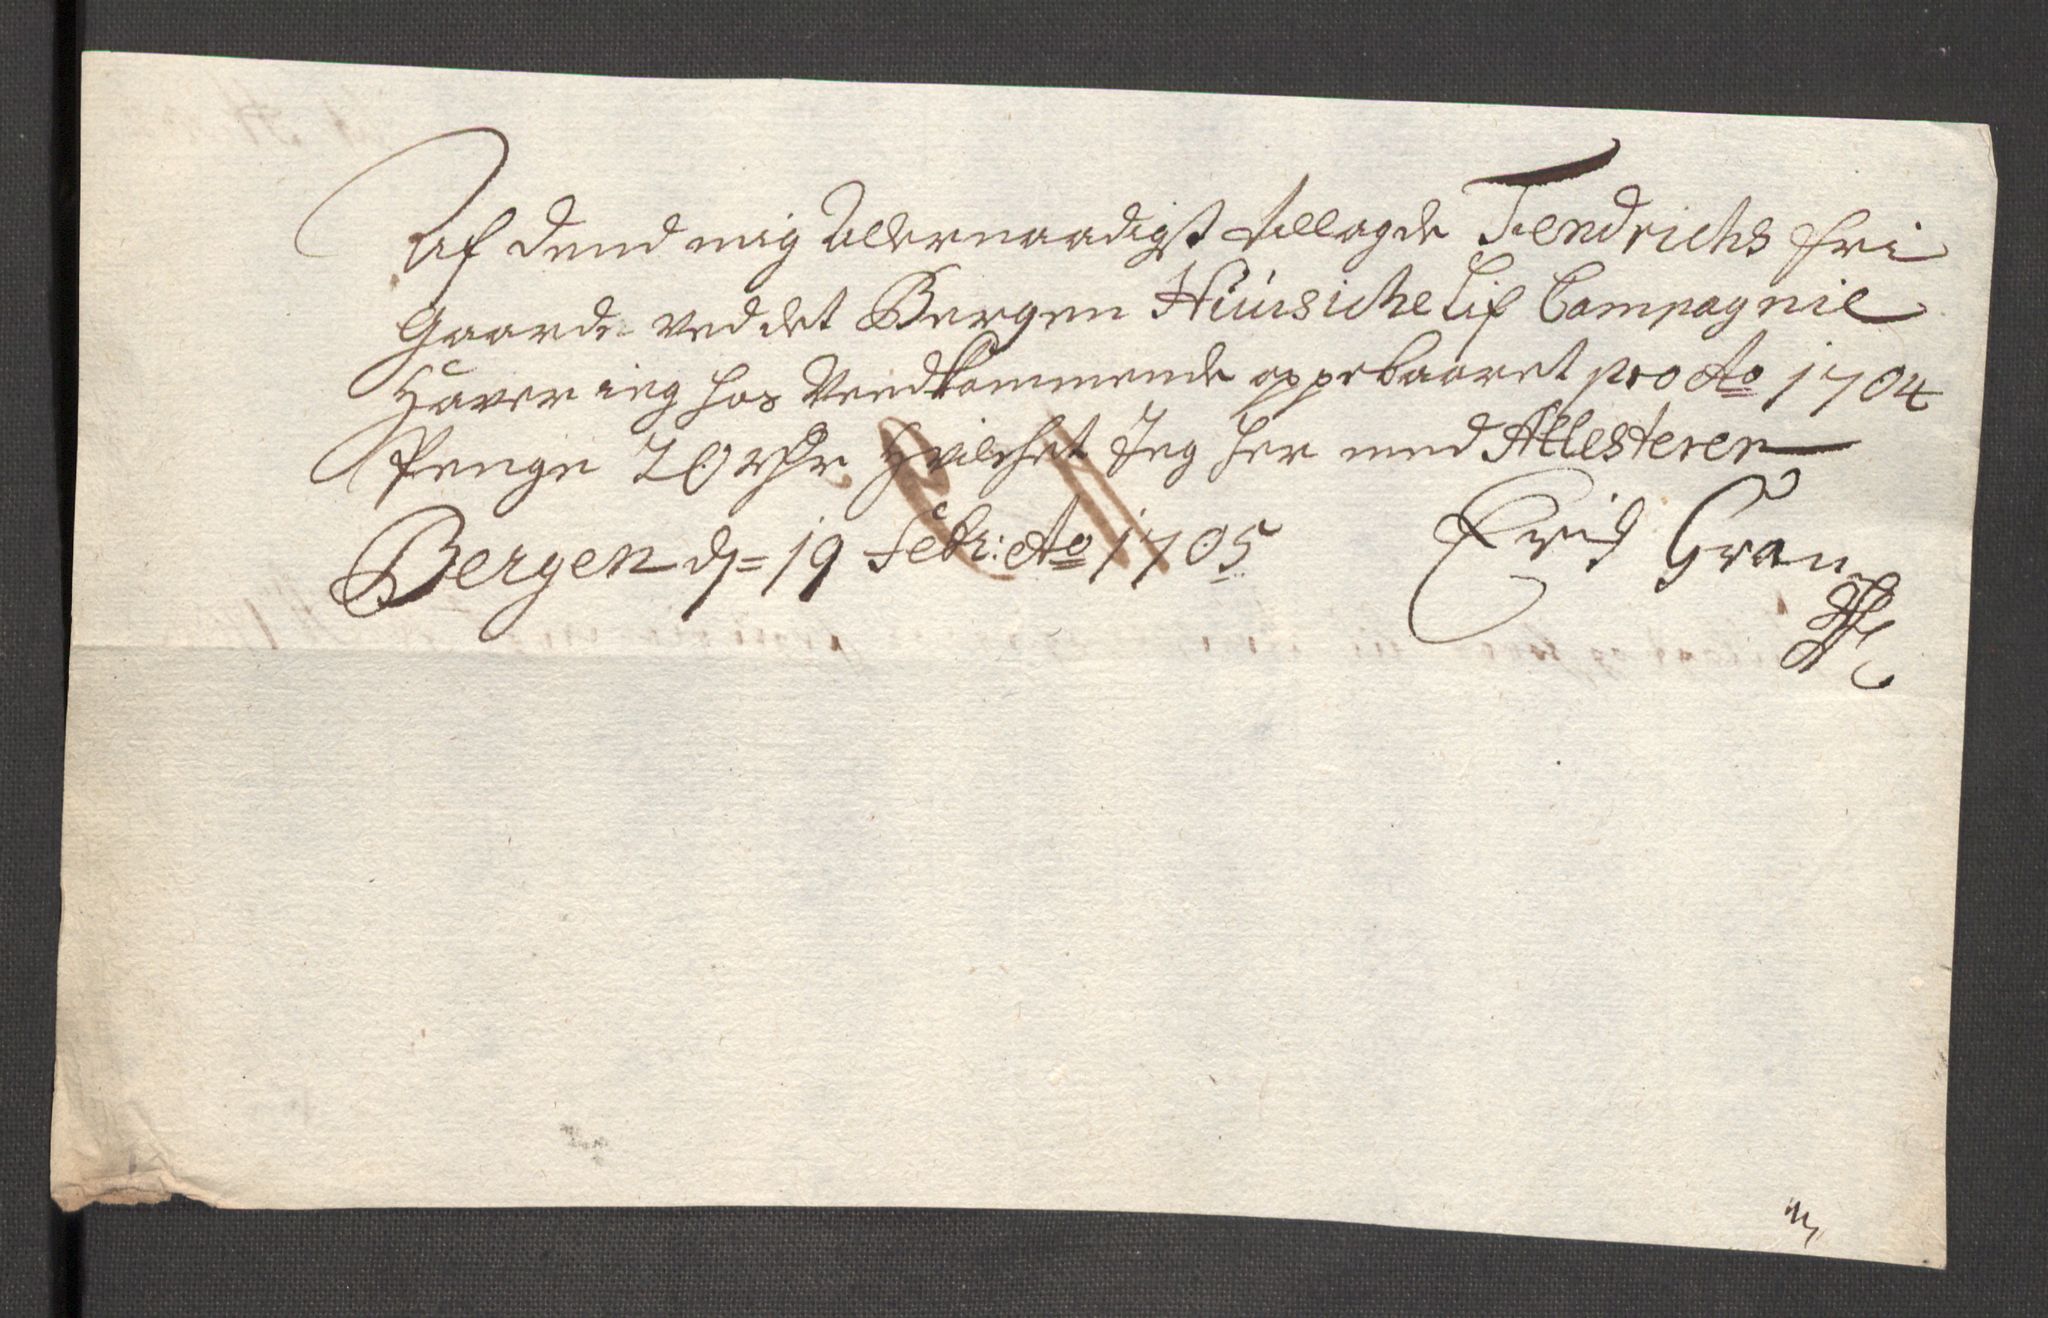 Af dend mig Allernaadigst tillagde Fendrichs fri
Gaarde ved det Bergen Huusiche Lif Compagnie
Haver ieg hos Vedkommende oppebaaret pro Ao 1704
Penge 20 rdr hvilchet Jeg her med Attesterer
Bergen d= 19 Febr: Ao 1705 Erich Gran